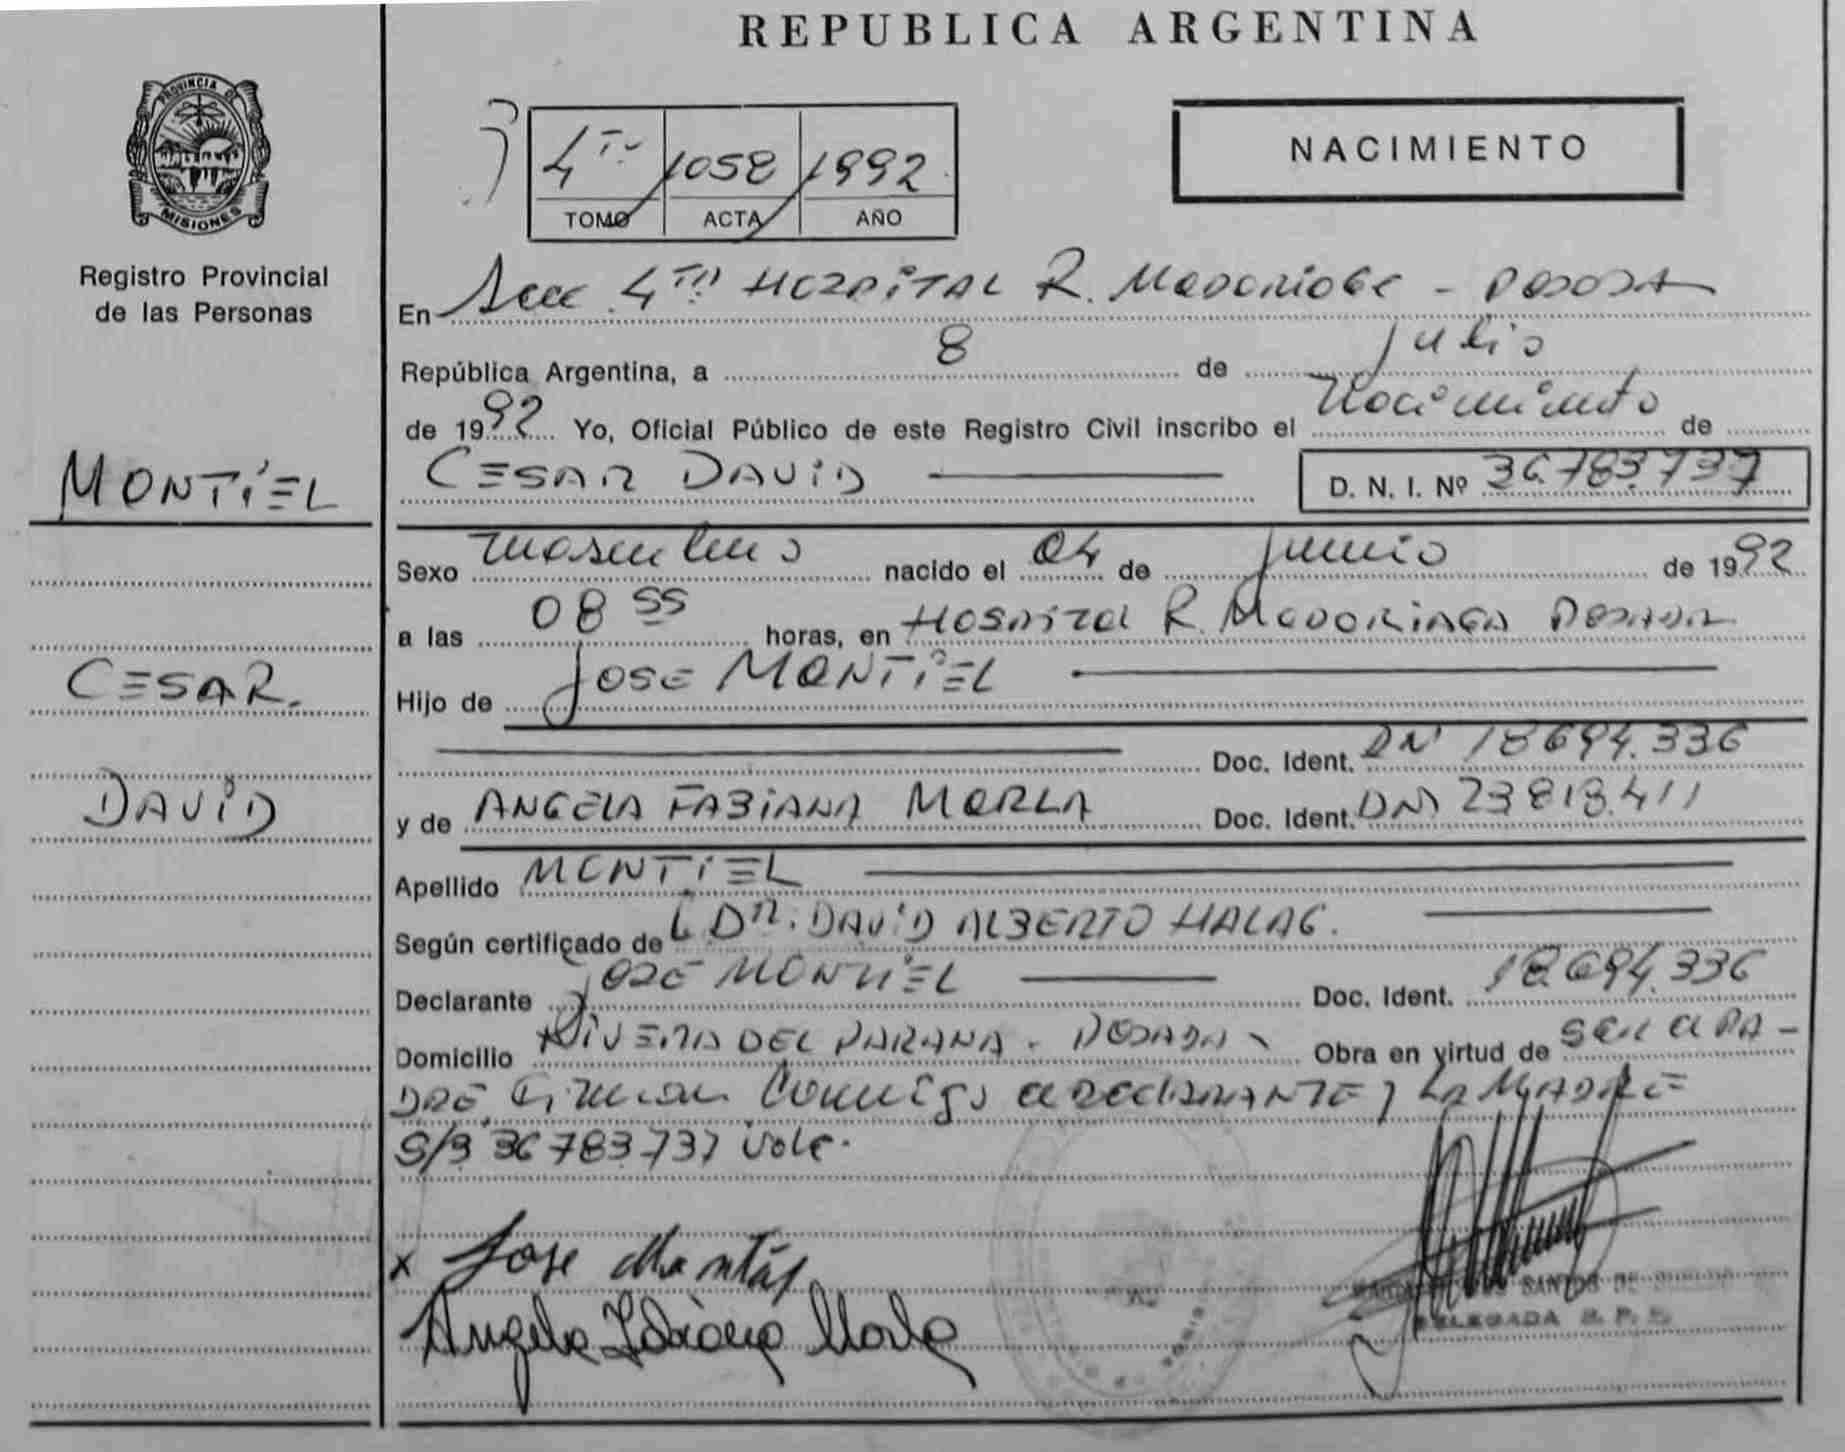 REPUBLICA ARGENTINA
PROVINCIA DE
MISIONES
Registro Provincial
de las Personas
MONTIEL
CESAR.
DAVID
4 1058 1992
TOMO ACTA AÑO
NACIMIENTO
En Secc 4 HOSPITAL R. Madariaga - Posadas
República Argentina, a 8 de julio
de 1992 Yo, Oficial Público de este Registro Civil inscribo el Nacimiento de
CESAR DAVID D. N. I. Nº 36.783.737
Sexo masculino nacido el 04 de junio de 1992
a las 08 55 horas, en Hospital R. Madariaga Posadas
Hijo de JOSE MONTIEL
Doc. Ident. DNI 18694.336
y de ANGELA FABIANA MORLA Doc. Ident. DNI 23813.411
Apellido MONTIEL
Según certificado de DR. DAVID ALBERTO HALAG.
Declarante JOSE MONTIEL Doc. Ident. 18.694.336
Domicilio RIVERA DEL PARANA. POSADAS Obra en virtud de ser el PA-
DRE. Firman Conmigo el DECLARANTE y LA MADRE
S/B 36783737 Vale.
x Jose Montiel
Angela Fabiana Morla
SANTOS DE
DELEGADA R. P. P.